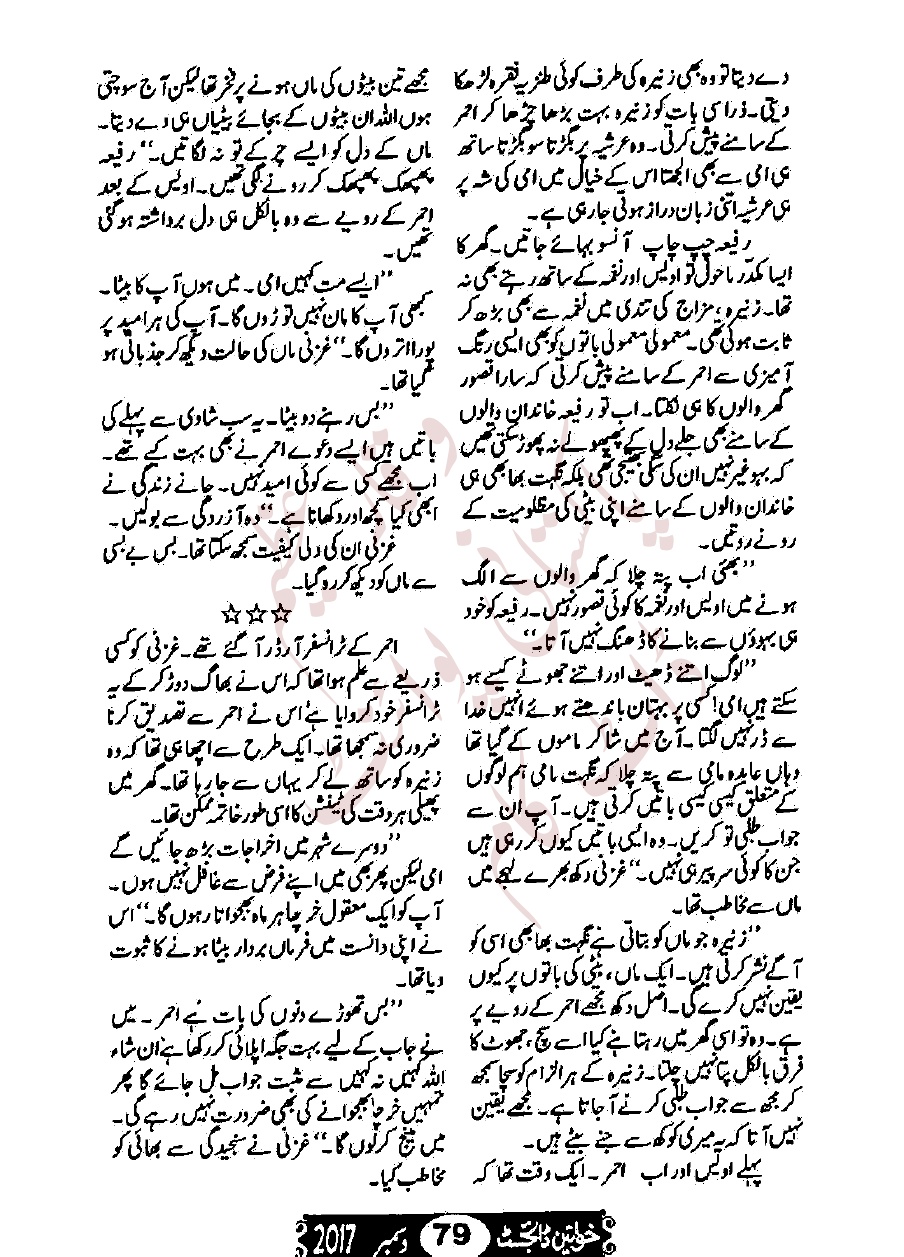 دے دیتا تو وہ بھی زنیرہ کی طرف کوئی طنزیہ فقرہ لڑھکا
دیتی۔ ذرا سی بات کو زنیرہ بہت بڑھا چڑھا کر احمر
کے سامنے پیش کرتی۔ وہ عرشیہ پر بگڑتا سو بگڑتا ساتھ
ہی امی سے بھی الجھتا اس کے خیال میں امی کی شہ پر
ہی عرشیہ اتنی زبان دراز ہوئی جا رہی ہے۔
رفیعہ چپ چاپ آنسو بہائے جاتیں۔ گھر کا
ایسا مکدر ماحول تو اویس اور نغمہ کے ساتھ رہتے بھی نہ
تھا۔ زنیرہ، مزاج کی تندی میں نغمہ سے بھی بڑھ کر
ثابت ہوئی تھی۔ معمولی معمولی باتوں کو بھی ایسی رنگ
آمیزی سے احمر کے سامنے پیش کرتی کہ سارا قصور
گھر والوں کا ہی نکلتا۔ اب تو رفیعہ خاندان والوں
کے سامنے بھی جلے دل کے پھپھولے نہ پھوڑ سکتی تھیں
کہ بہو غیر نہیں ان کی سگی بھتیجی تھی بلکہ نگہت بھابھی ہی
خاندان والوں کے سامنے اپنی بیٹی کی مظلومیت کے
رونے روتیں۔
”بھئی اب پتہ چلا کہ گھر والوں سے الگ
ہونے میں اویس اور نغمہ کا کوئی قصور نہیں۔ رفیعہ کو خود
ہی بہوؤں سے بنانے کا ڈھنگ نہیں آتا۔“
”لوگ اتنے ڈھیٹ اور اتنے جھوٹے کیسے ہو
سکتے ہیں امی! کسی پر بہتان باندھتے ہوئے انہیں خدا
سے ڈر نہیں لگتا۔ آج میں شاکر ماموں کے گیا تھا
وہاں عابدہ مامی سے پتہ چلا کہ نگہت مامی ہم لوگوں
کے متعلق کیسی کیسی باتیں کرتی ہیں۔ آپ ان سے
جواب طلبی تو کریں۔ وہ ایسی باتیں کیوں کر رہی ہیں
جن کا کوئی سر پیر ہی نہیں۔“ غزنی دکھ بھرے لہجے میں
ماں سے مخاطب تھا۔
”زنیرہ جو ماں کو بتاتی ہے نگہت بھابھی اسی کو
آگے نشر کرتی ہیں۔ ایک ماں، بیٹی کی باتوں پر کیوں
یقین نہیں کرے گی۔ اصل دکھ مجھے احمر کے رویے پر
ہے۔ وہ تو اسی گھر میں رہتا ہے کیا اسے سچ، جھوٹ کا
فرق بالکل پتا نہیں چلتا۔ زنیرہ کے ہر الزام کو سچا سمجھ
کر مجھ سے جواب طلبی کرنے آ جاتا ہے۔ مجھے یقین
نہیں آتا کہ یہ میری کوکھ سے جنے بیٹے ہیں۔
پہلے اویس اور اب احمر۔ ایک وقت تھا کہ
مجھے تین بیٹوں کی ماں ہونے پر فخر تھا لیکن آج سوچتی
ہوں اللہ ان بیٹوں کے بجائے بیٹیاں ہی دے دیتا۔
ماں کے دل کو ایسے چرکے تو نہ لگاتیں۔“ رفیعہ
پھپھک پھپھک کر رونے لگی تھیں۔ اویس کے بعد
احمر کے رویے سے وہ بالکل ہی دل برداشتہ ہو گئی
تھیں۔
”ایسے مت کہیں امی۔ میں ہوں آپ کا بیٹا۔
کبھی آپ کا مان نہیں توڑوں گا۔ آپ کی ہر امید پر
پورا اتروں گا۔“ غزنی ماں کی حالت دیکھ کر جذباتی ہو
گیا تھا۔
”بس رہنے دو بیٹا۔ یہ سب شادی سے پہلے کی
باتیں ہیں ایسے دعوے احمر نے بھی بہت کیے تھے۔
اب مجھے کسی سے کوئی امید نہیں۔ جانے زندگی نے
ابھی کیا کچھ اور دکھانا ہے۔“ وہ آزردگی سے بولیں۔
غزنی ان کی دلی کیفیت سمجھ سکتا تھا۔ بس بے بسی
سے ماں کو دیکھ کر رہ گیا۔
☆☆☆
احمر کے ٹرانسفر آرڈر آ گئے تھے۔ غزنی کو کسی
ذریعے سے علم ہوا تھا کہ اس نے بھاگ دوڑ کر کے یہ
ٹرانسفر خود کروایا ہے اس نے احمر سے تصدیق کرنا
ضروری نہ سمجھا تھا۔ ایک طرح سے اچھا ہی تھا کہ وہ
زنیرہ کو ساتھ لے کر یہاں سے جا رہا تھا۔ گھر میں
پھیلی ہر وقت کی ٹینشن کا اسی طور خاتمہ ممکن تھا۔
”دوسرے شہر میں اخراجات بڑھ جائیں گے
امی لیکن پھر بھی میں اپنے فرض سے غافل نہیں ہوں۔
آپ کو ایک معقول خرچا ہر ماہ بھجواتا رہوں گا۔“ اس
نے اپنی دانست میں فرماں بردار بیٹا ہونے کا ثبوت
دیا تھا۔
”بس تھوڑے دنوں کی بات ہے احمر۔ میں
نے جاب کے لیے بہت جگہ اپلائی کر رکھا ہے ان شاء
اللہ کہیں نہ کہیں سے مثبت جواب مل جائے گا پھر
تمہیں خرچا بھجوانے کی بھی ضرورت نہیں رہے گی۔
میں مینج کر لوں گا۔“ غزنی نے سنجیدگی سے بھائی کو
مخاطب کیا۔
خواتین ڈائجسٹ 79 دسمبر 2017